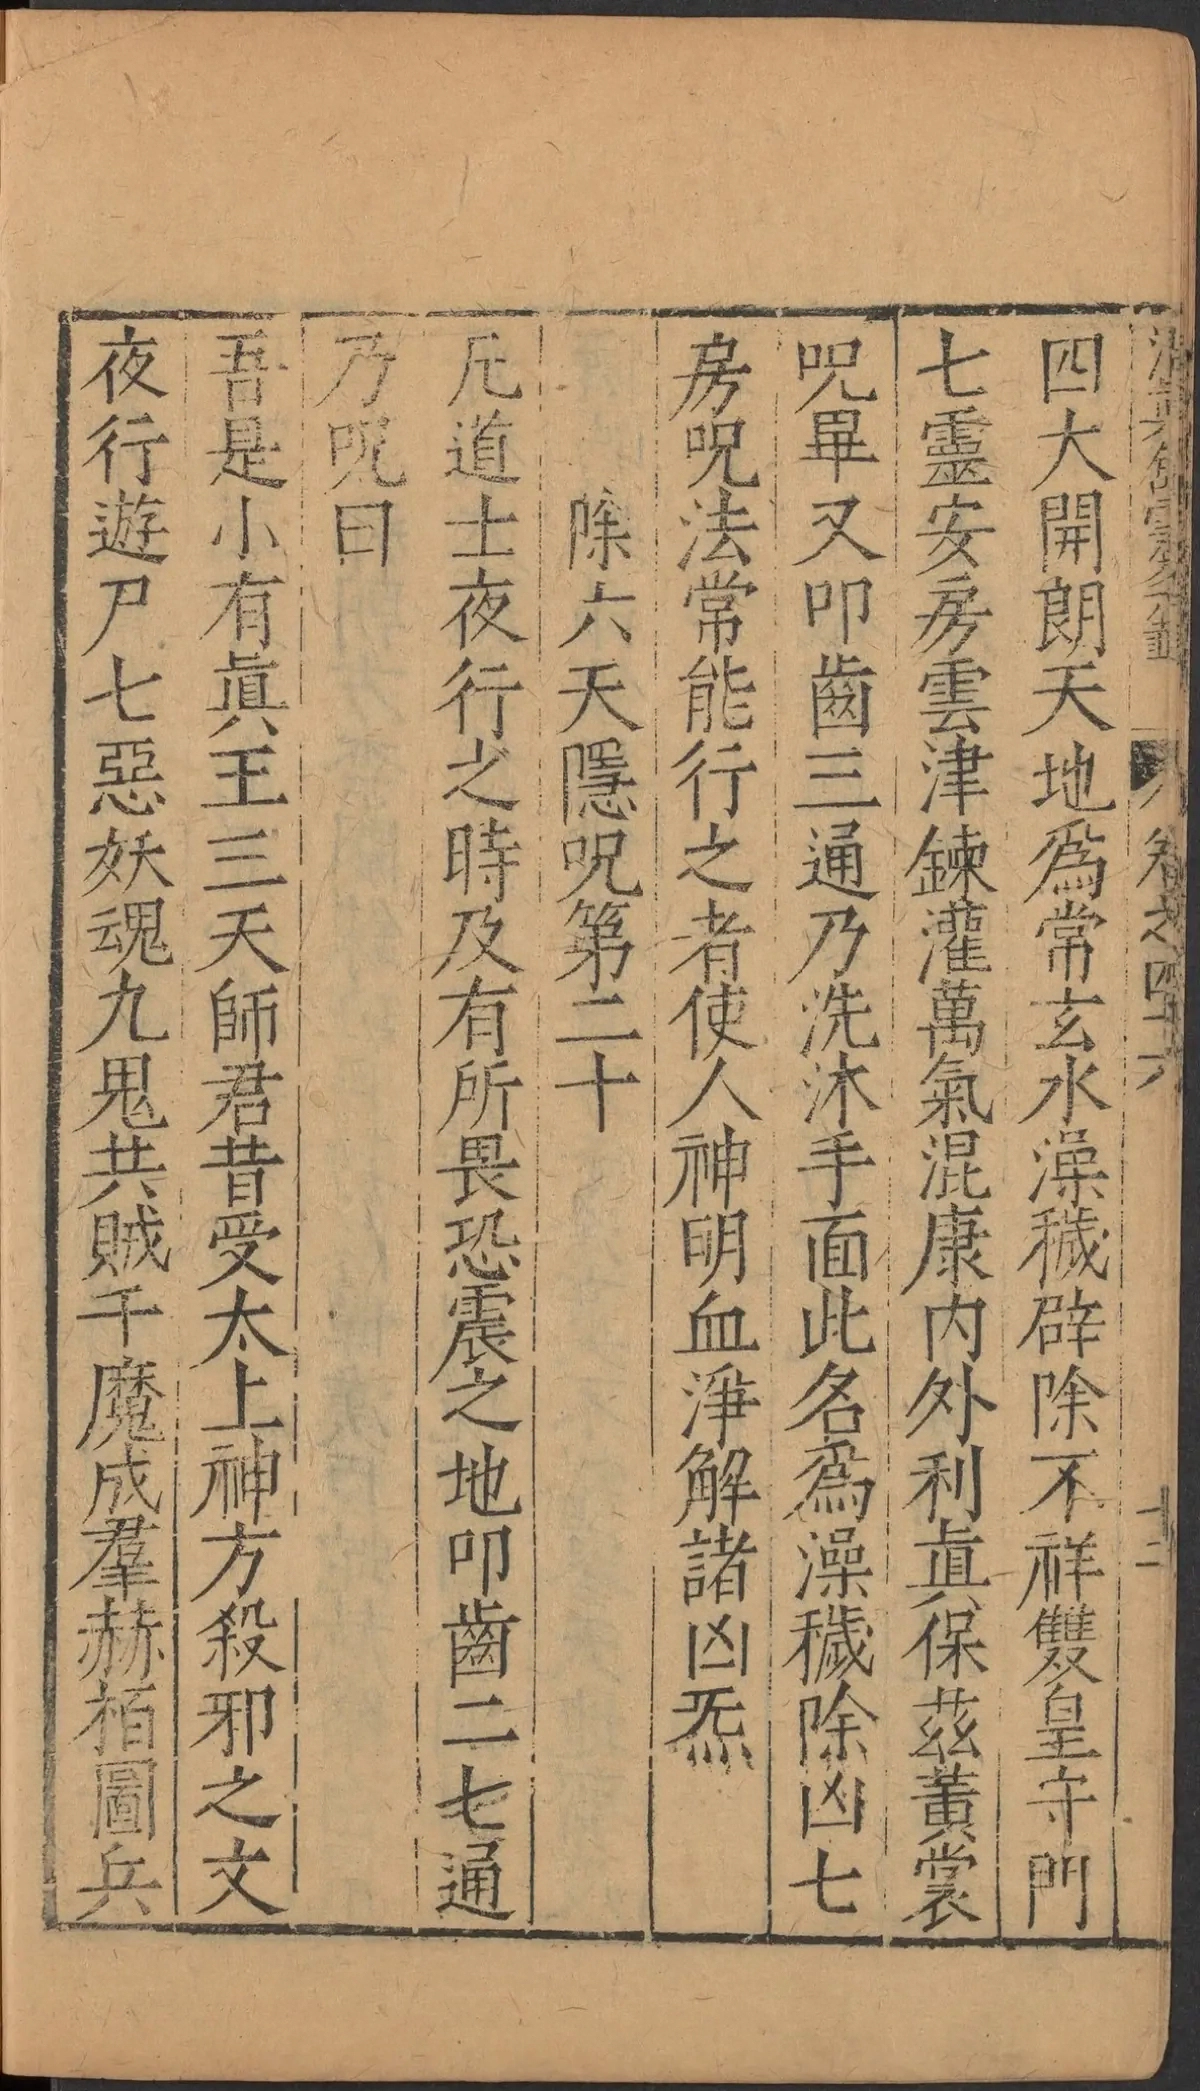 卷之四十六
十二
四大開朗天地為常玄水澡穢辟除不祥雙皇守門
七靈安房雲津鍊灌萬氣混康内外利眞保茲黃裳
呪畢又叩齒三通乃洗沐手面此名為澡穢除凶七
房呪法常能行之者使人神明血淨解諸凶炁
除六天隱呪第二十
凡道士夜行之時及有所畏恐震之地叩齒二七通
乃呪曰
吾是小有眞王三天師君昔受太上神方殺邪之文
夜行遊尸七惡妖魂九鬼共賊千魔成羣赫栢圖兵